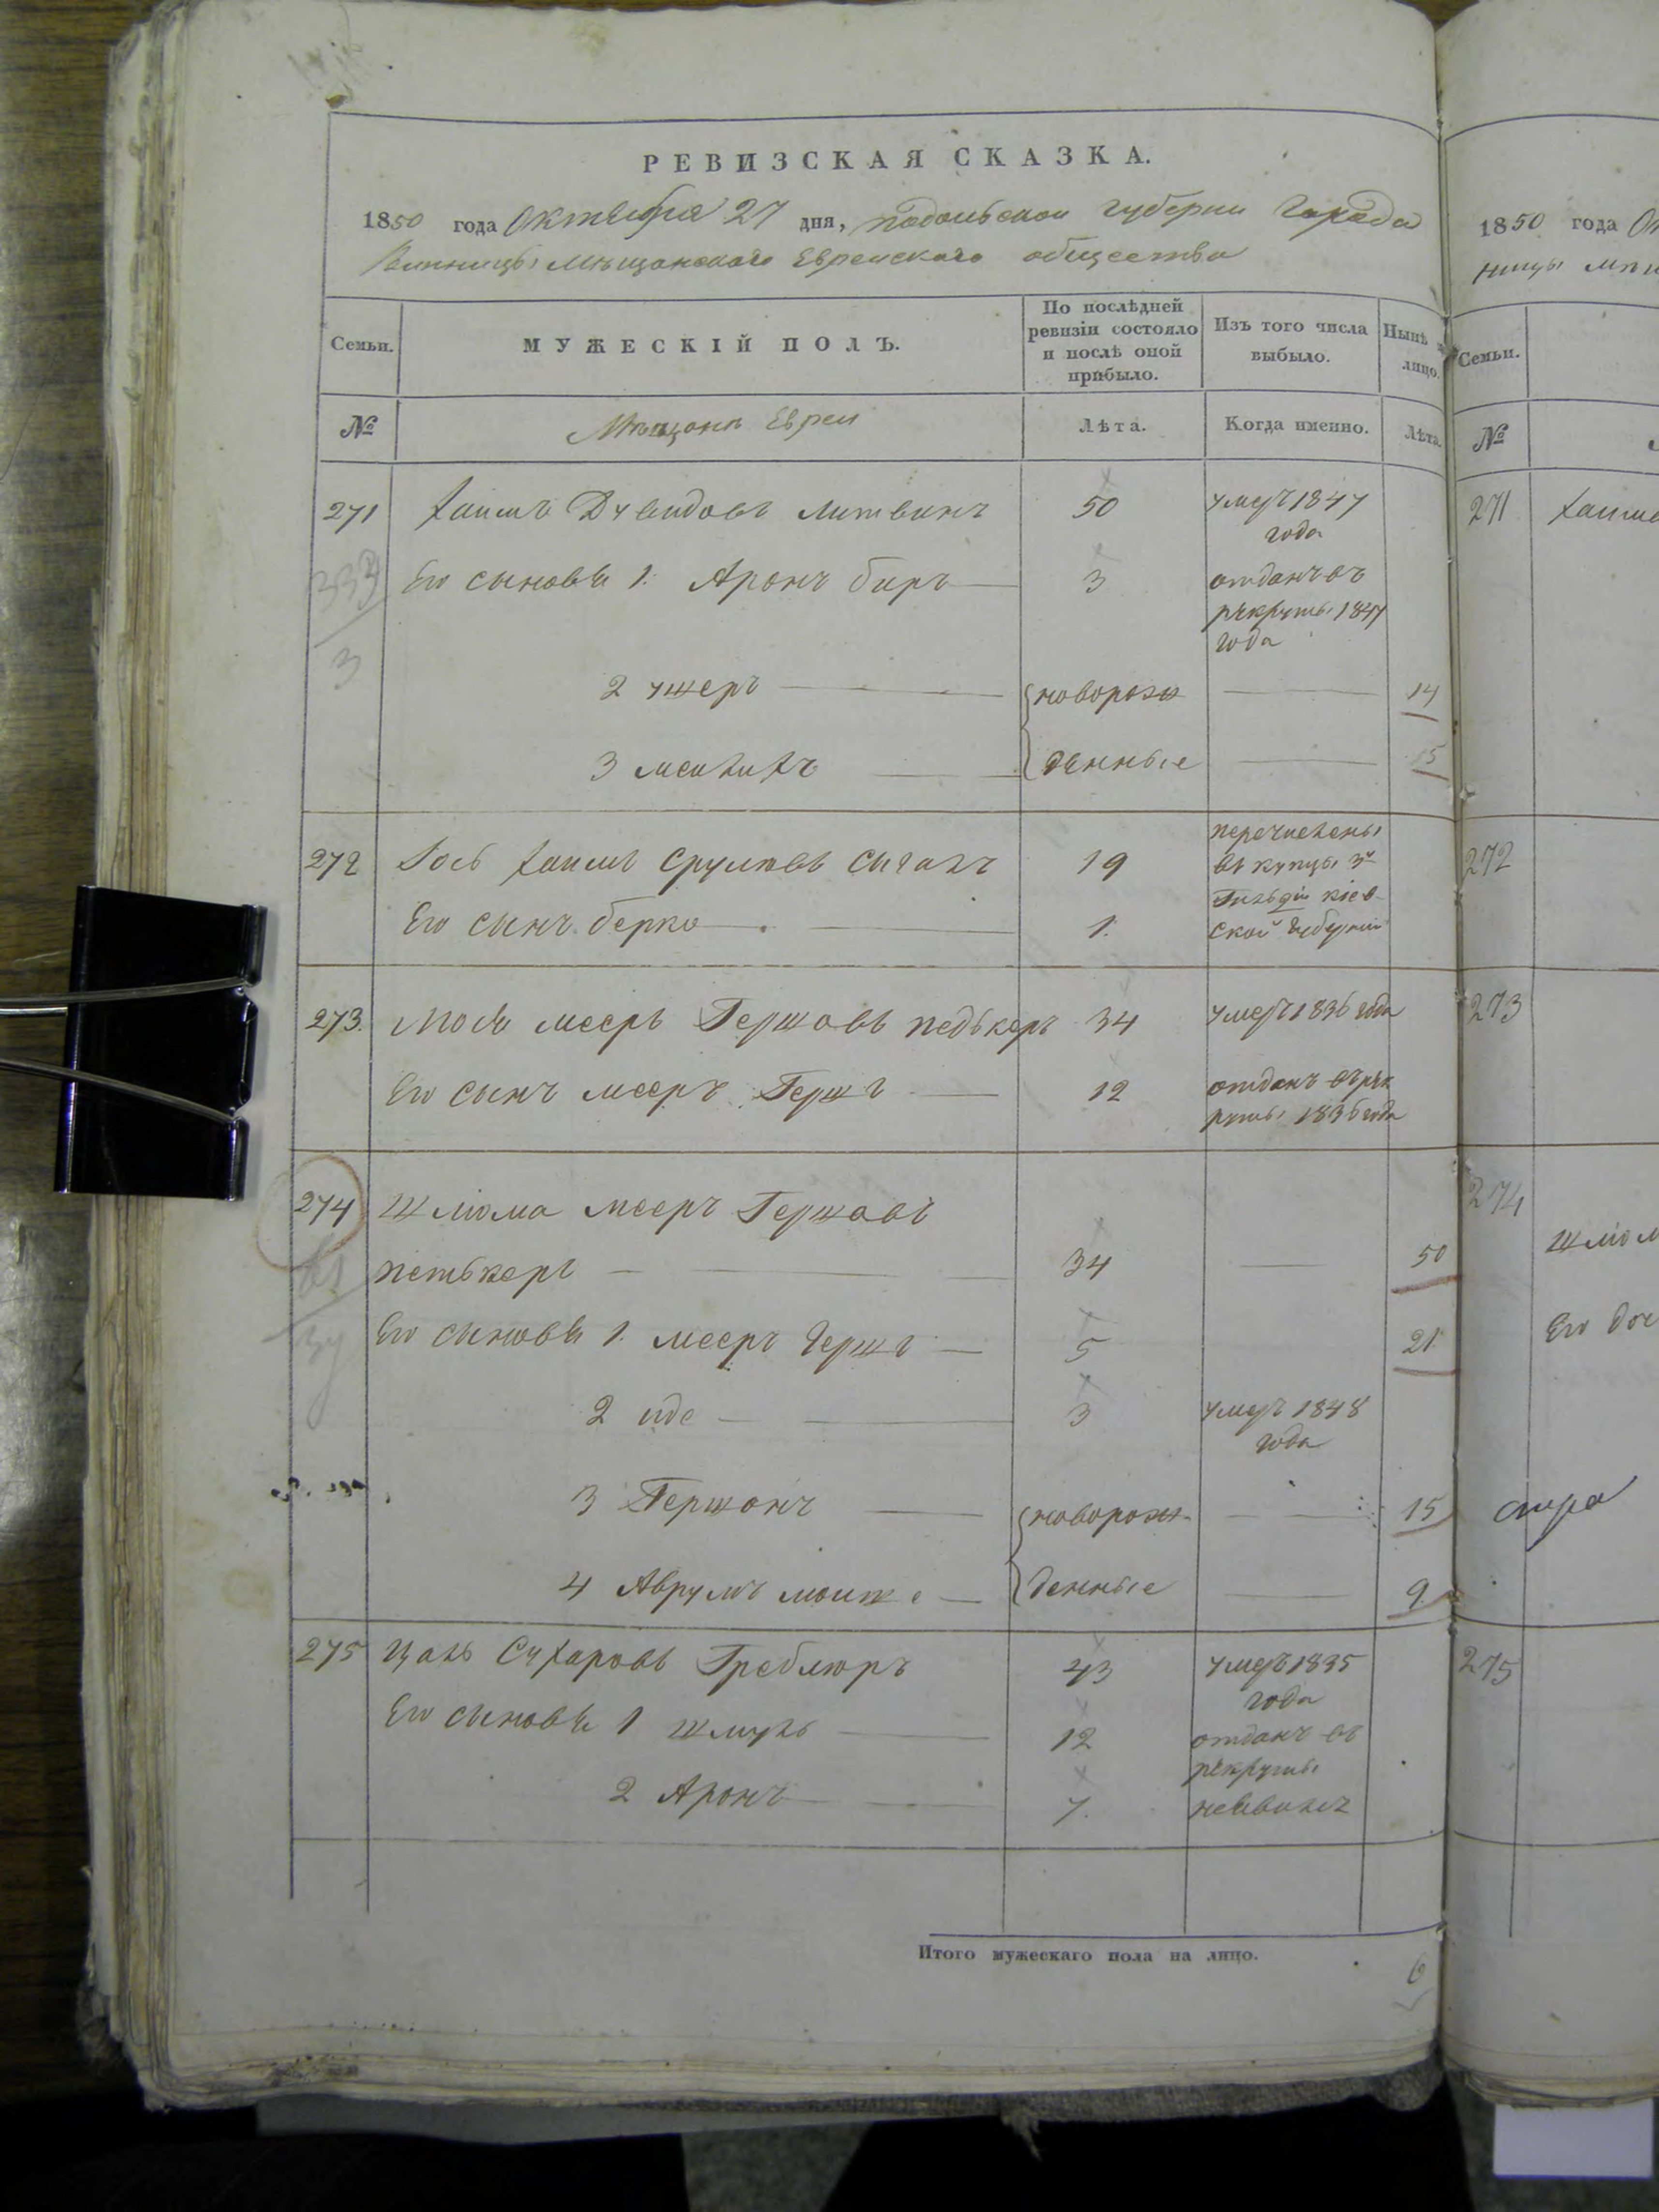 РЕВИЗСКАЯ СКАЗКА.
1850 года Октября 27 дня, Подольской губернии Города
Винницы Мещанского Еврейского общества
Семьи. МУЖЕСКІЙ ПОЛЪ. По послѣдней ревизіи состояло и послѣ оной прибыло. Изъ того числа выбыло. Нынѣ на лицо.
№ Мещане Евреи Лѣта. Когда именно. Лѣта.
271 Хаимъ Дувидовъ Литвинъ 50 умеръ 1847
года
Его сыновья 1. Аронъ Беръ 3 отданъ въ
рекруты 1847
года
333
3
2 ушеръ новорож 14
3 мейлихъ денные 15
272 Іось Хаимъ Срулевъ 19 перечислены
въ купцы 3й
Гильдіи Кіев
Его сынъ берко 1. ской Губерніи
273. Мееръ Гершовъ педькеръ 34 умеръ 1836 года
Его сынъ мееръ Гершъ 12 отданъ въ рек
руты 1836 года
274 Шліома мееръ Гершовъ
петькеръ 34 50
Его сыновья 1. мееръ Гершъ 5 21
2 иде 3 умеръ 1848
года
3 Гершонъ новорож 15
4 Аврумъ мошке денные 9
275 Цаль Сухаровъ Греблюръ 43 умеръ 1835
года
Его сыновья 1 шмуль 12 отданъ въ
рекруты
2 Аронъ 7. неявился
Итого мужескаго пола на лицо. 6
1850 года
ницы
Семьи.
№
271 Хаим
272
273
274
Шліом
Его доч
сура
275